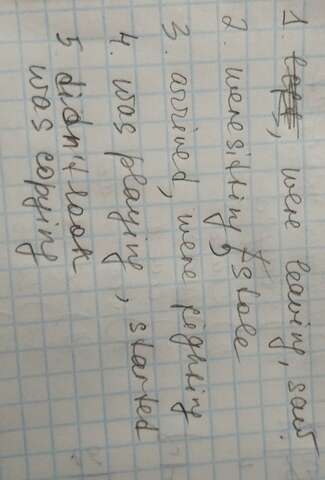 1. left, were leaving, saw.
2. were sitting, stole
3. arrived, were fighting
4. was playing, started
5 didn't look
was copying